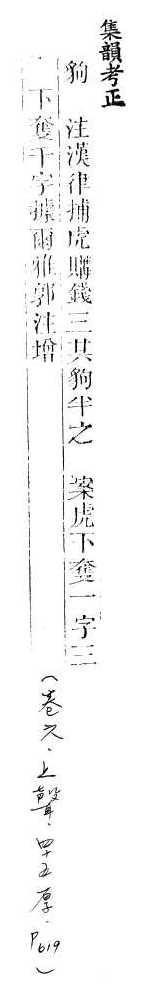 集韻考正
㺃 注漢律捕虎購錢三其㺃半之 案虎下奪一字三
下奪千字據爾雅郭注增
(卷六.上聲.四十五厚.P619)